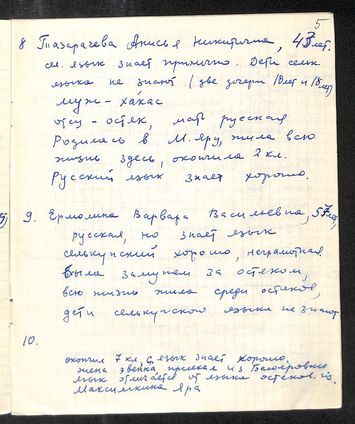 5
8 Тагарачева Анисья Никитична, 43 лет.
сел. язык знает прилично. Дети сельк.
языка не знают (две дочери 10 лет и 18 лет)
муж - хакас
отец - остяк, мать русская
Родилась в М.Яру, жила всю
жизнь здесь, окончила 2 кл.
Русский язык знает хорошо.
9. Ермолина Варвара Васильевна, 57 лет,
русская, но знает язык
селькупский хорошо, неграмотная
Была замужем за остяком,
всю жизнь жила среди остяков,
дети селькупского языка не знают
10.
окончил 7 кл, с. язык знает хорошо.
жена эвенка, приехал из Белояровки
язык отличается от языка остяков из
Максимкина Яра